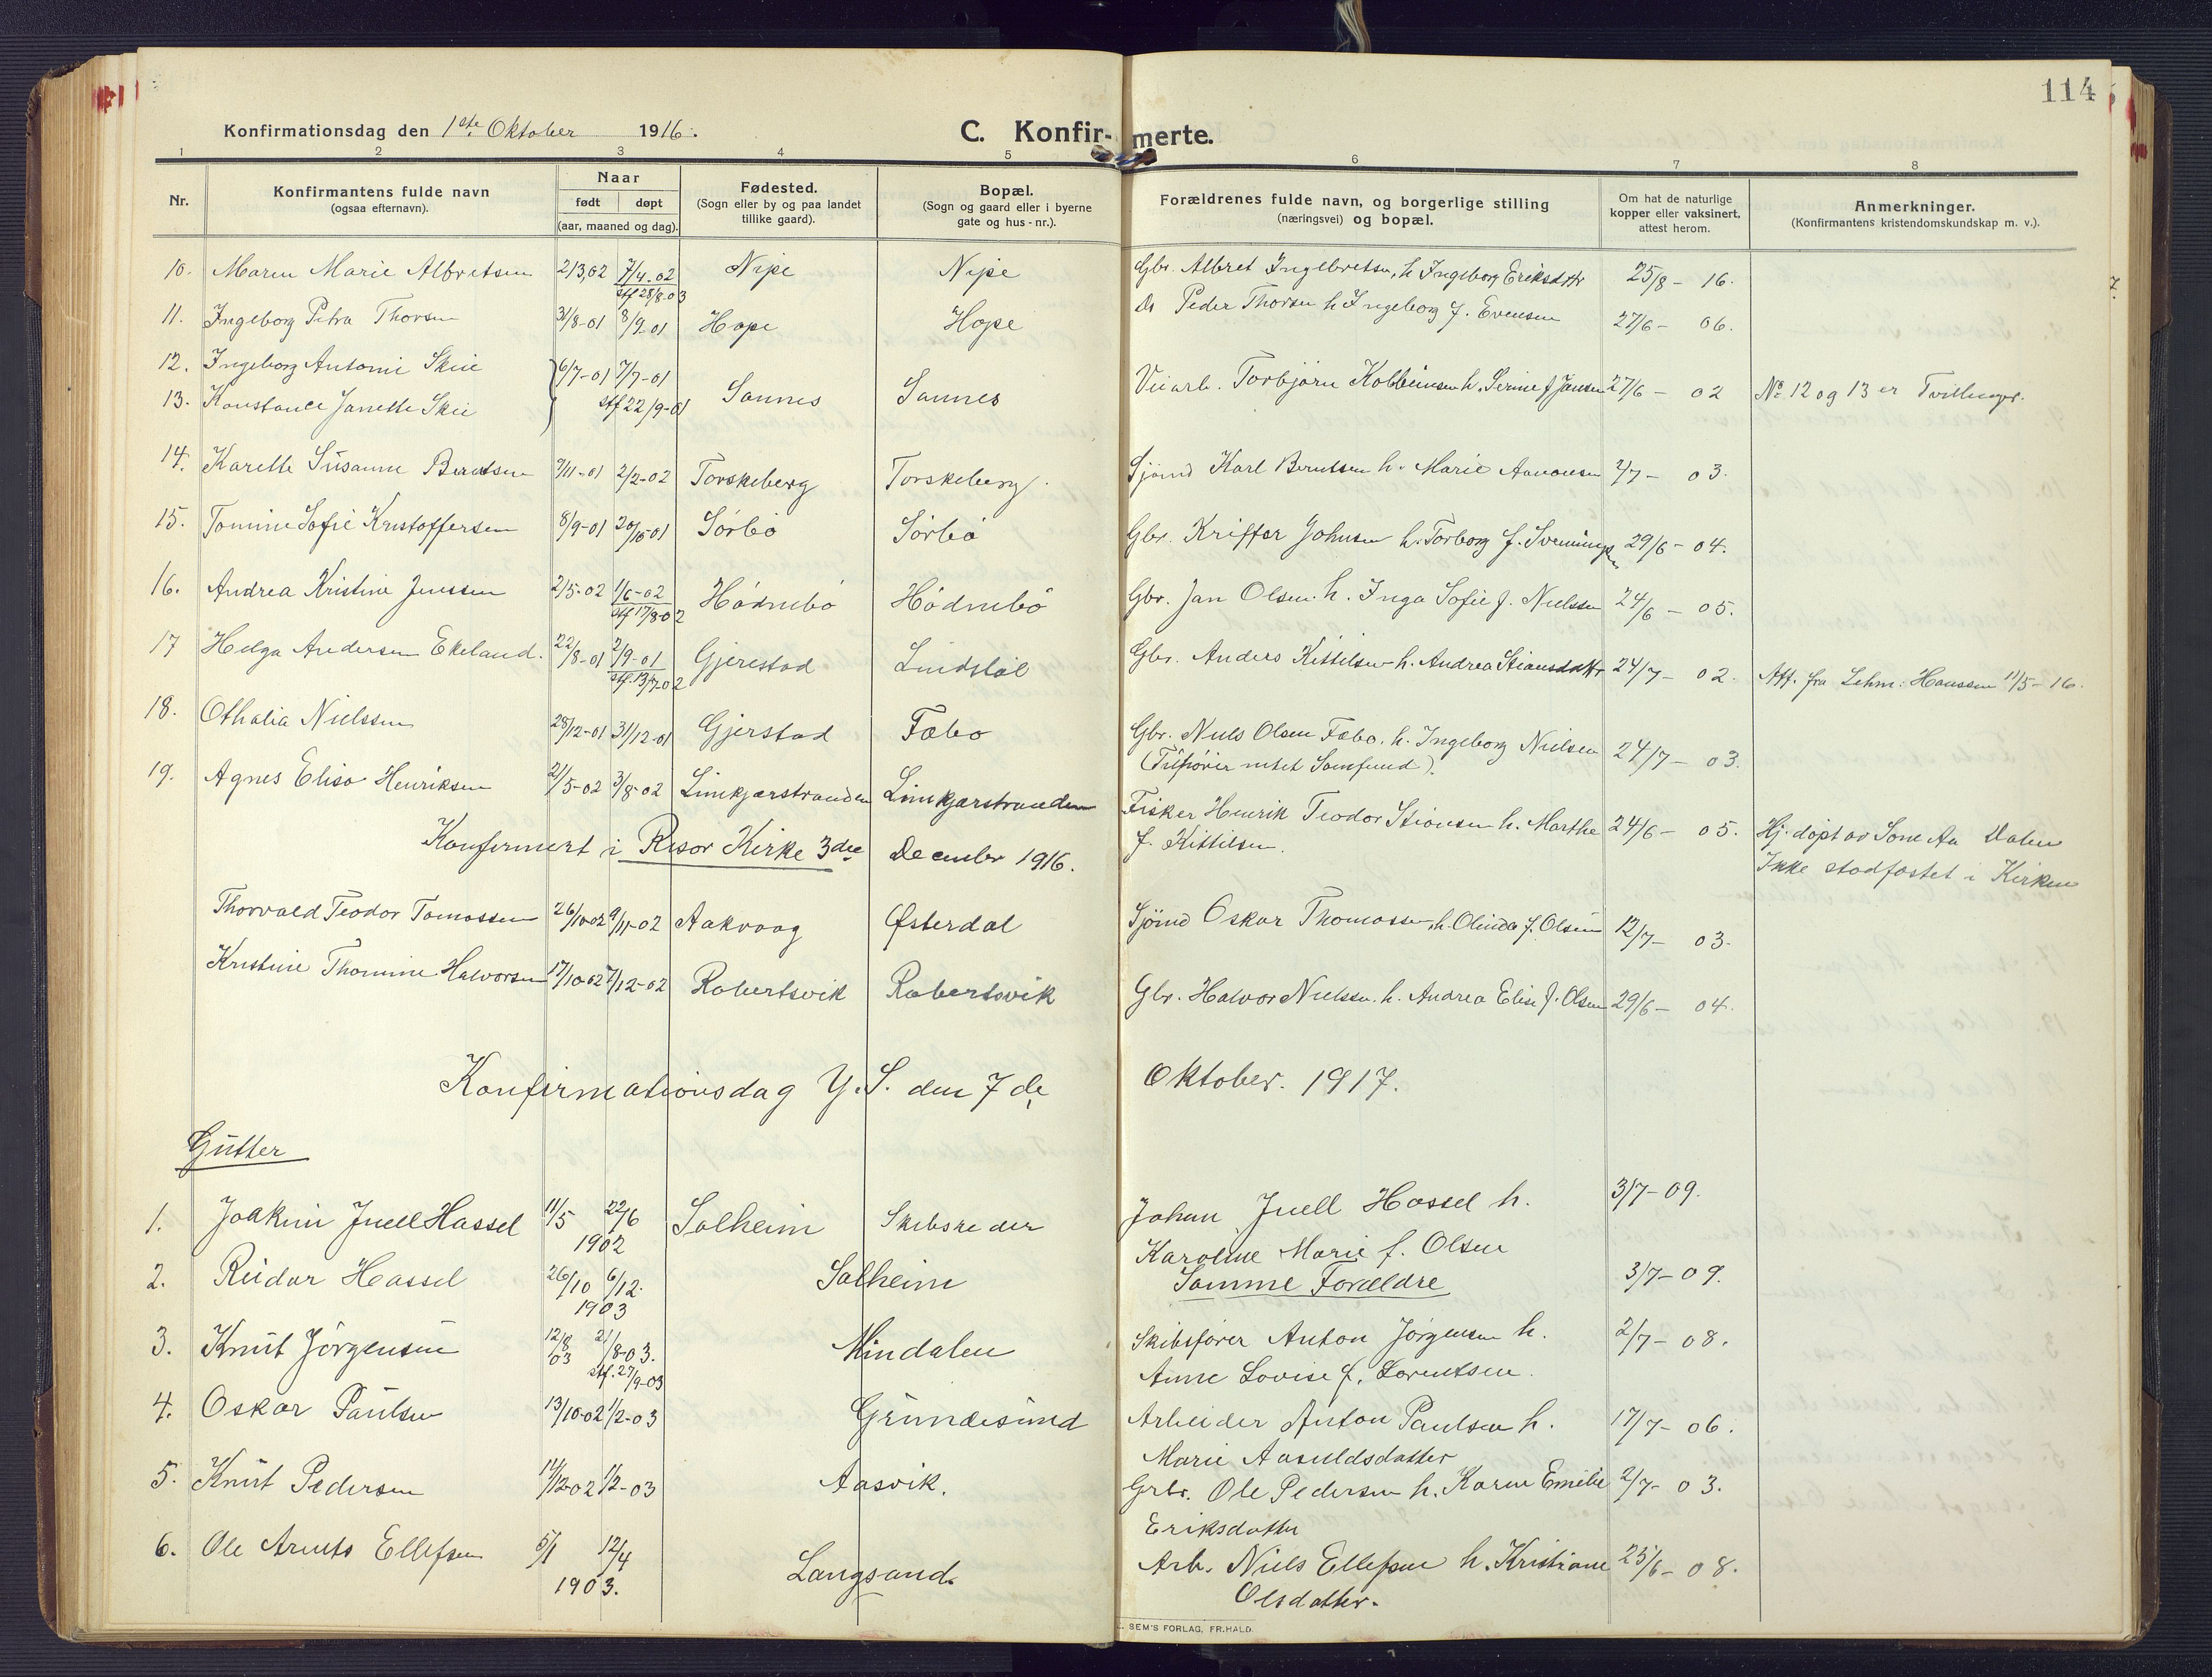 114
Konfirmationsdag den 1ste Oktober 1916.
C. Konfir-merte.
1 2 3 4 5 6 7 8
Nr.
Konfirmantens fulde navn
(ogsaa efternavn).
Naar
født døpt
(aar, maaned og dag).
Fødested.
(Sogn eller by og paa landet
tillike gaard).
Bopæl.
(Sogn og gaard eller i byerne
gate og hus-nr.).
Forældrenes fulde navn, og borgerlige stilling
(næringsvei) og bopæl.
Om hat de naturlige
kopper eller vaksinert,
attest herom.
Anmerkninger.
(Konfirmantens kristendomskundskap m. v.).
10. Maren Marie Albretsen 2/3,02 7/4-02 Nipe Nipe Gbr. Albret Ingebretsen, h. Ingeborg Eriksdttr 25/8 - 16.
stf 28/8-03
11. Ingeborg Petra Thorsen 31/8-01 8/9-01 Hope Hope Do Peder Thorsen h Ingeborg f. Evensen 27/6 - 06.
12. Ingeborg Antomi Skie 6/7-01 7/7-01
13. Konstance Janette Skie stf 22/9-01 Sannes Sannes Veiarb. Torbjørn Kolbeinsen h. Serine f Jansen 27/6 - 02 No 12 og 13 er Tvillinger.
14. Karelle Susanne Berntsen 9/11-01 2/2-02 Torskeberg Torskeberg. Sjømd Karl Berntsen h. Marie Aanonsen 2/7 - 03.
15. Tomine Sofie Kristoffersen 8/9-01 20/10-01 Sörbö Sörbö Gbr. Kriffer Johnsen h. Torborg f. Svenningsen 29/6 - 04.
16. Andrea Kristine Jenssen 2/5-02 1/6-02 Hödnebö Hödnebö Gbr. Jan Olsen. h. Inga Sofie f. Nielssen 24/6 - 05.
stf 17/8-02
17 Helga Andersen Ekeland. 22/8-01 2/9-01 Gjerestad Lindstøl Gbr. Anders Kittilsen h. Andrea Stiansdattr 24/7 - 02. Att. fra Lehm. Hanssen 11/5-16.
stf. 13/7-02
18. Othalia Nielssen 28/12-01 31/12-01 Gjerstad Fæbo Gbr. Niels Olsen Fæbo. h. Ingeborg Nielsen 24/7 - 03.
(Tilhører intet Samfund).
19. Agnes Elisa Henriksen 21/5-02 3/8-02 Limkjærstranden Limkjærstranden Fisker Henrik Teodor Stiansen h. Marthe 24/6 - 05. Hj. døpt av Tone Aa Dalen
f. Kittilsen. Ikke stadfæstet i Kirken
Konfirmert i Risør Kirke 3die December 1916.
Thorvald Teodor Tomassen 26/10-02 9/11-02 Aakvaag Østerdal Sjömd Oskar Thomassen, h. Olinda f. Olsen 12/7 - 03.
Kristine Thomine Halvorsen 17/10-02 7/12-02 Robertsvik Robertsvik Gbr. Halvor Nielssen. h. Andrea Elise f. Olsen 29/6 - 04.
Konfirmationsdag Y. S. den 7de Oktober. 1917.
Gutter
1. Joakim Juell Hassel 11/5 22/6 1902 Solheim Skibsreder Johan Juell Hassel h. 3/7-09.
Karoline Marie f. Olsen
2. Reidar Hassel 26/10 6/12. 1903 Solheim Samme Forældre 3/7-09.
3. Knut Jörgensen 12/8 03 21/8-03. Mindalen Skibsfører Anton Jørgensen h. 2/7-08.
stf. 27/9-03 Anne Lovise f. Lorentsen.
4. Oskar Paulsen 13/10-02 1/2-03 Grundesund Arbeider Anton Paulsen h. 17/7-06.
Marie Aasuldsdatter
5. Knut Pedersen 14/12-02 1/2-03 Aasvik. Grbr. Ole Pedersen h. Karen Emilie 2/7-03.
Eriksdatter
6. Ole Arnets Ellefsen 5/1 12/4 1903. Langsand. Arb. Niels Ellefsen h. Kristiane 25/6-08.
Olsdatter.
SEM'S FORLAG, FR.HALD